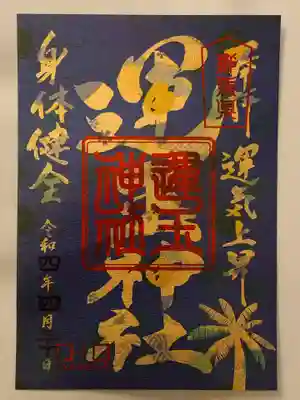 奉拝
運気上昇
運玉神社
運玉神社
身体健全
令和四年四月日